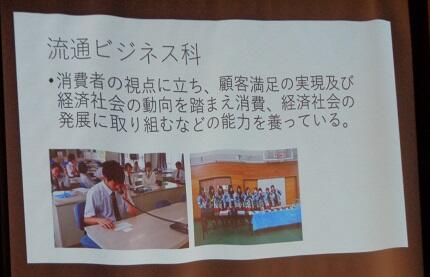 流通ビジネス科
•消費者の視点に立ち、顧客満足の実現及び
経済社会の動向を踏まえ消費、経済社会の
発展に取り組むなどの能力を養っている。